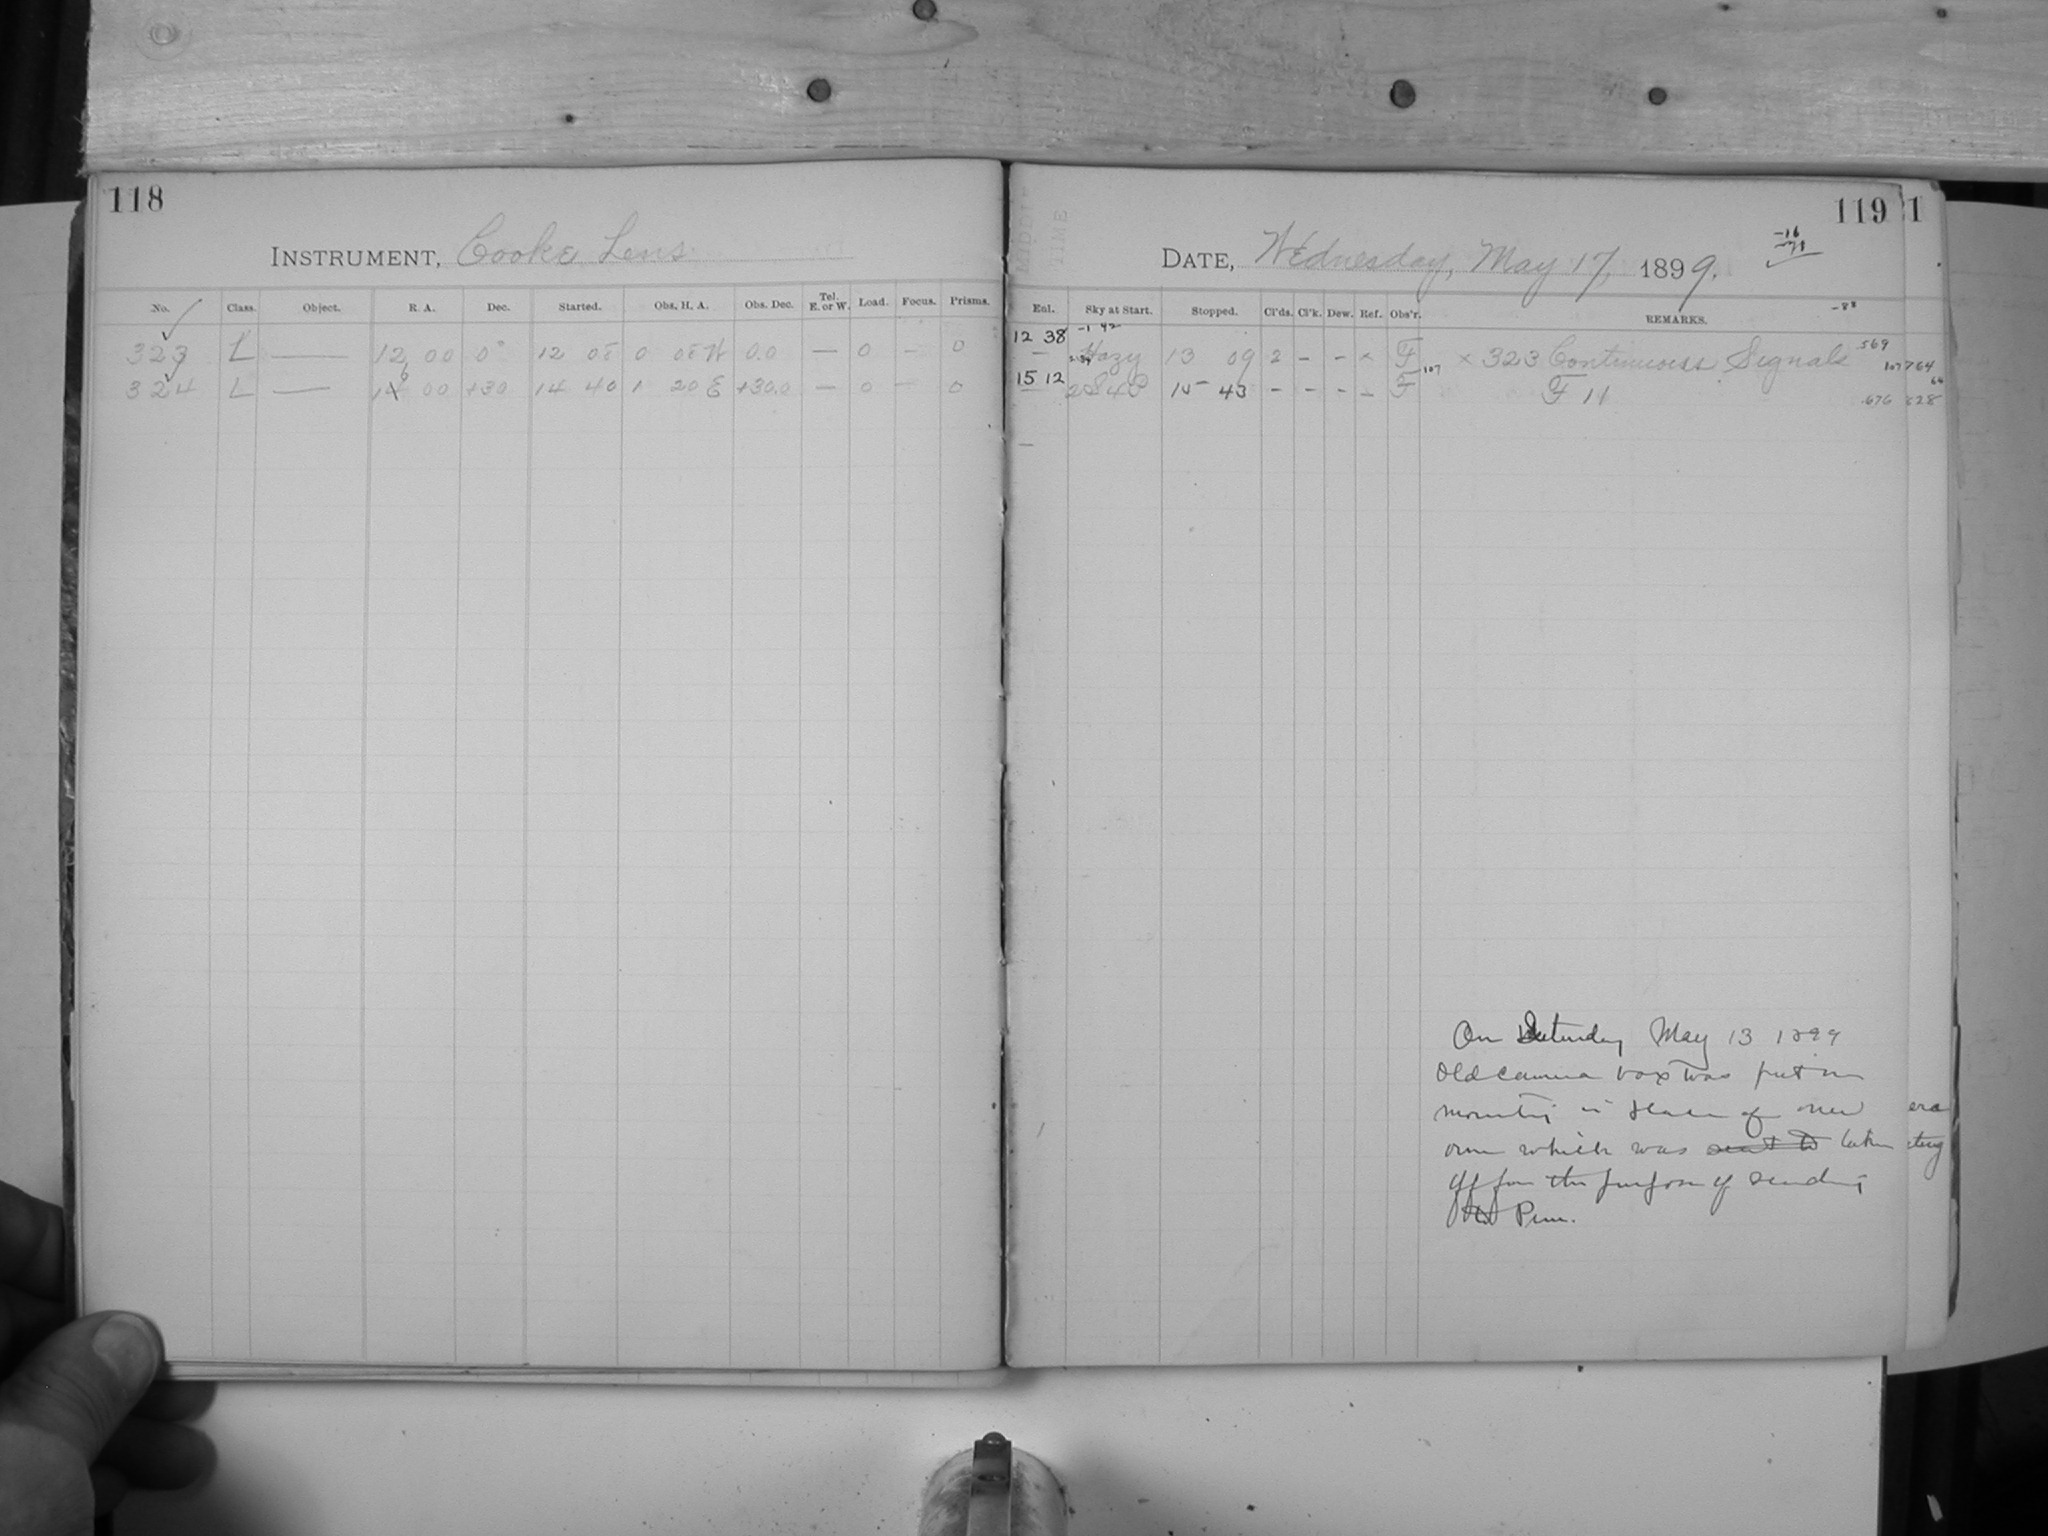 118
INSTRUMENT, Cooke Lens.
No. Class. Object. R. A. Dec. Started. Obs. H. A. Obs. Dec. Tel. E. or W. Load. Focus. Prisms.
323 L — 12 00 0° 12 08 0 08 W 0.0 — 0 — 0
324 L — 16 00 +30 14 40 1 20 E +30.0 — 0 — 0
119 1
DATE, Wednesday, May 17, 1899.
-16
Enl. Sky at Start. Stopped. Cl'ds. Cl'k. Dew. Ref. Obs'r. REMARKS.
12 38 -1 42
— Hazy 13 09 2 - - × F × 323 Continuous Signals .569
15 12 15 43 - - - - F 107 F 11 107 764
.676 828
—
On Saturday May 13 1899
Old camera box was put on
mounting in place of new
one which was sent to taken
off for the purpose of sending
to Peru.
era
ting